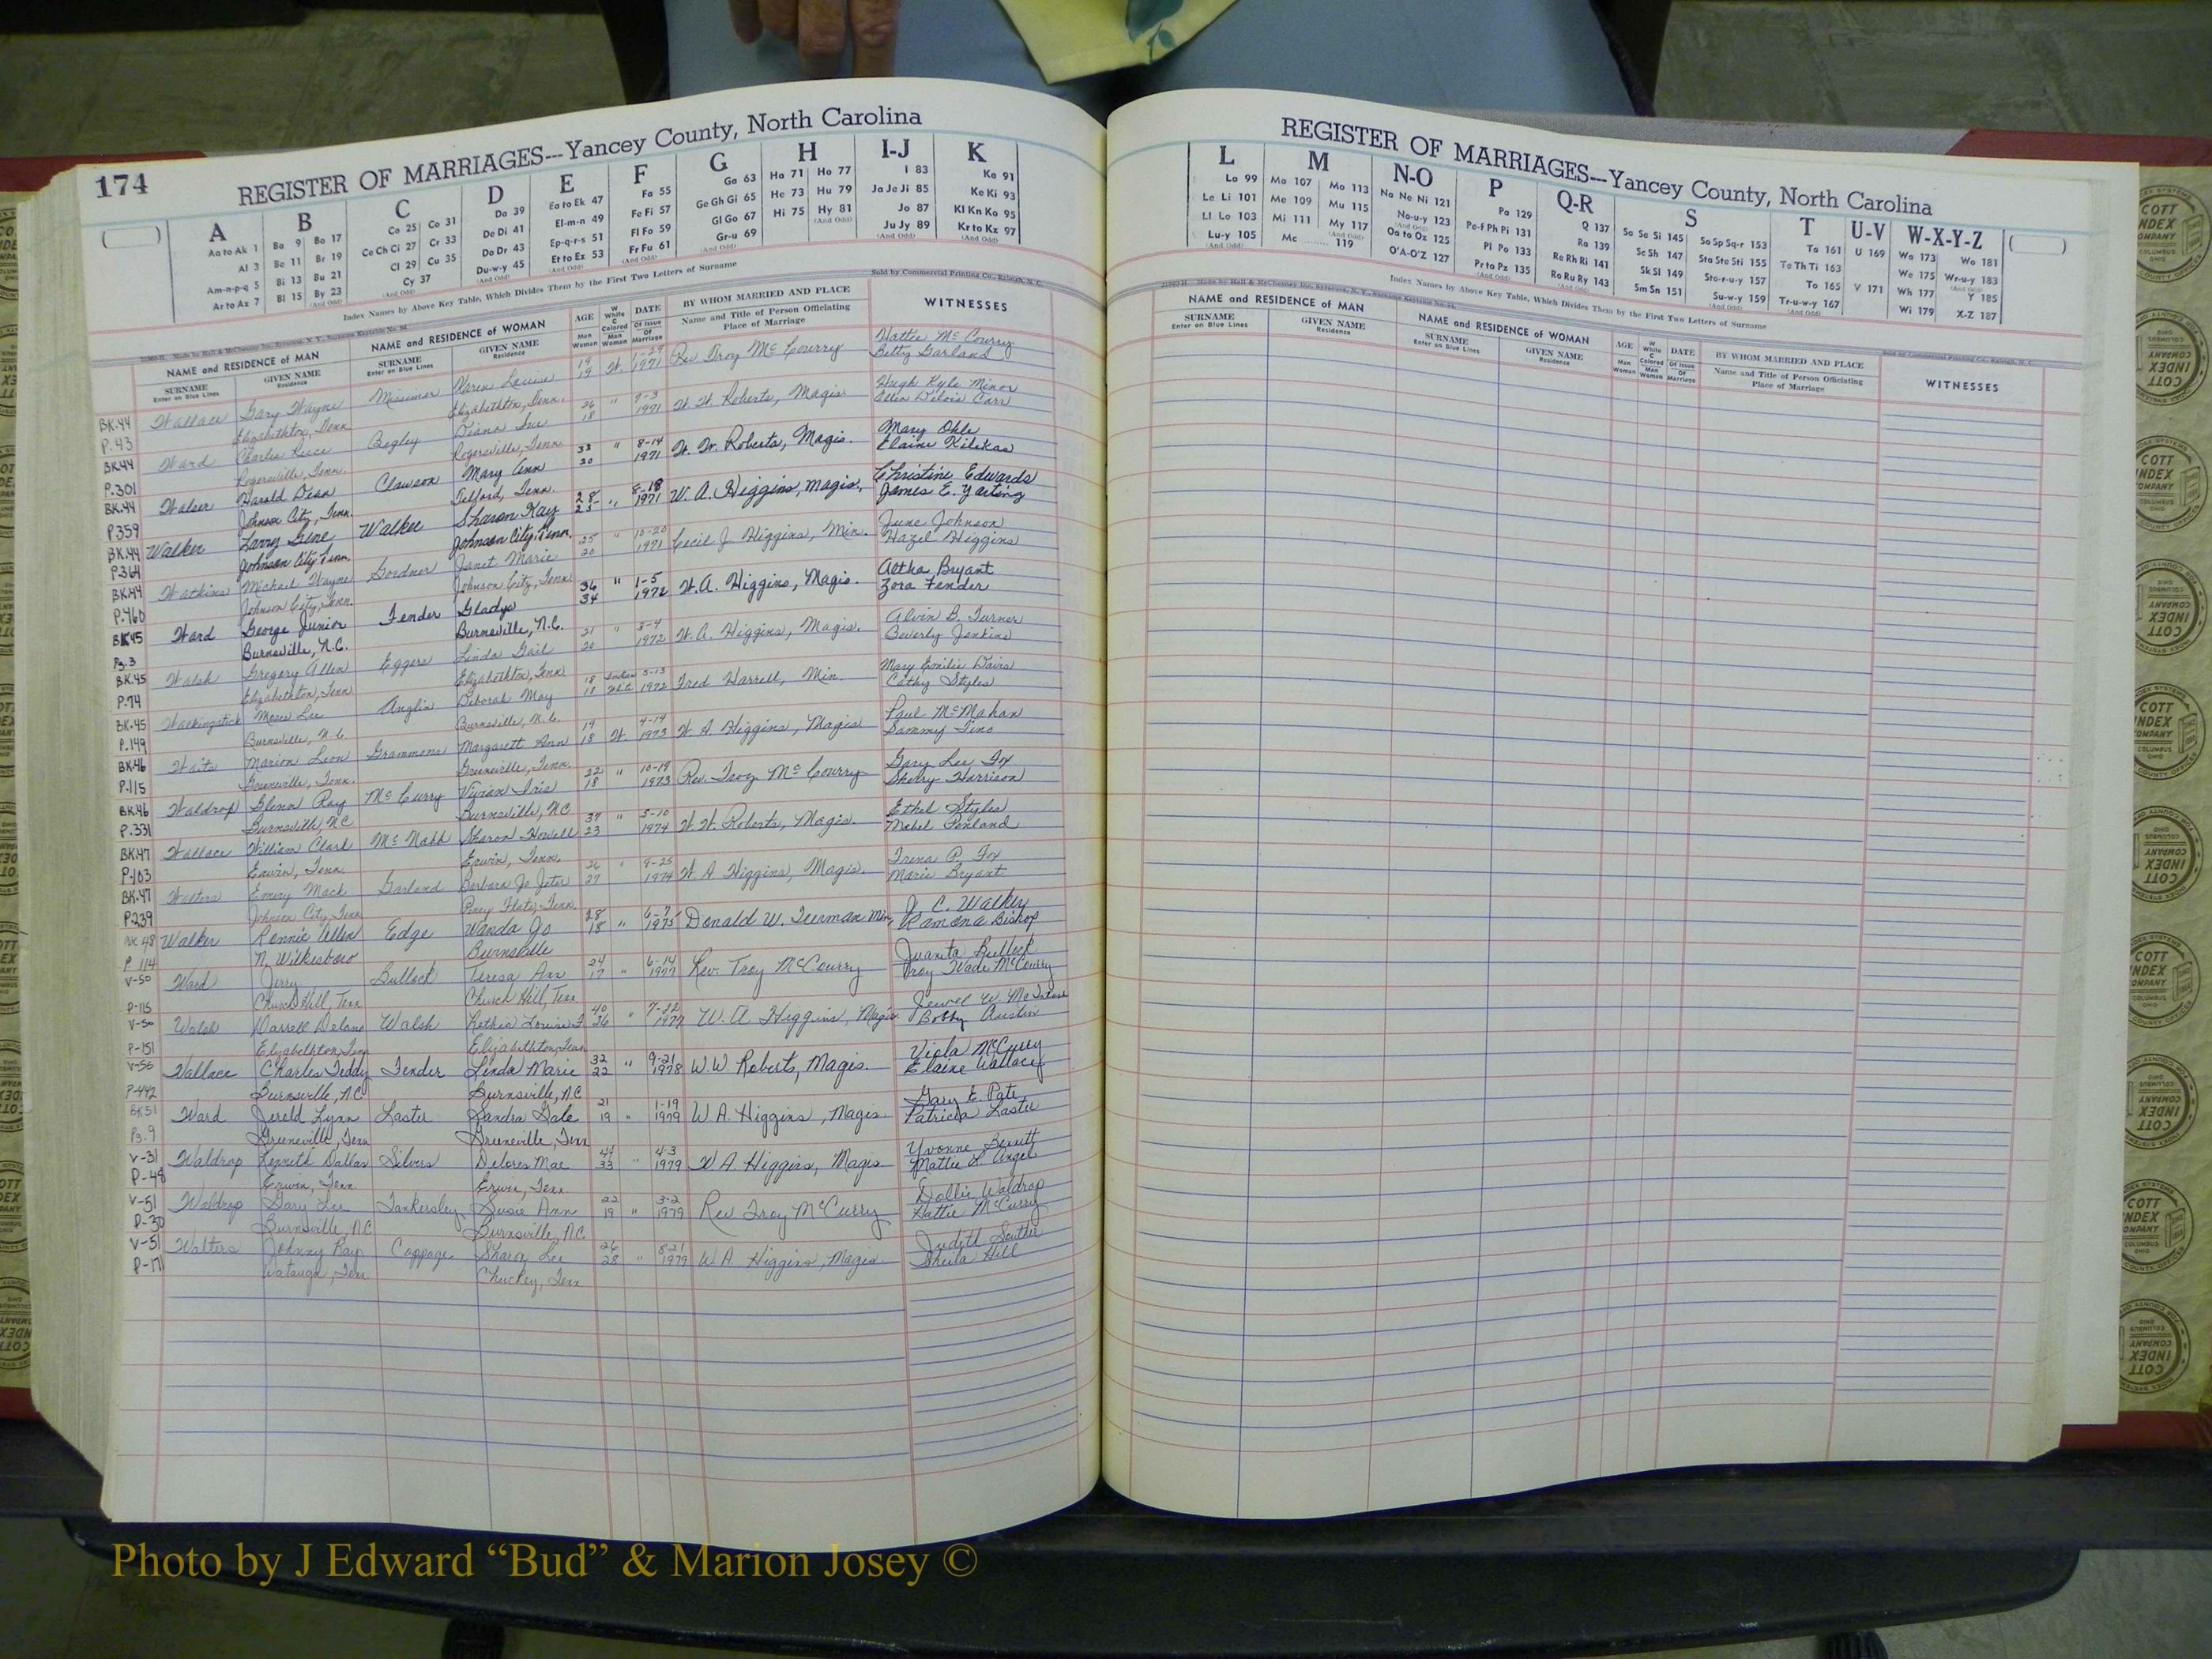 174
REGISTER OF MARRIAGES---Yancey County, North Carolina
A B C D E F G H I-J K
Aa to Ak 1 Ba 9 Bo 17 Ca 25 Co 31 Da 39 Ea to Ek 47 Fa 55 Ga 63 Ha 71 Ho 77 I 83 Ka 91
Al 3 Be 11 Br 19 Ce Ch Ci 27 Cr 33 De Di 41 El-m-n 49 Fe Fi 57 Ge Gh Gi 65 He 73 Hu 79 Ja Je Ji 85 Ke Ki 93
Am-n-p-q 5 Bi 13 Bu 21 Cl 29 Cu 35 Do Dr 43 Ep-q-r-s 51 Fl Fo 59 Gl Go 67 Hi 75 Hy 81 Jo 87 Kl Kn Ko 95
Ar to Az 7 Bl 15 By 23 Cy 37 Du-w-y 45 Et to Ex 53 Fr Fu 61 Gr-u 69 Ju Jy 89 Kr to Kz 97
Index Names by Above Key Table, Which Divides Them by the First Two Letters of Surname
Sold by Commercial Printing Co., Raleigh, N. C.
NAME and RESIDENCE of MAN NAME and RESIDENCE of WOMAN AGE DATE BY WHOM MARRIED AND PLACE WITNESSES
SURNAME Enter on Blue Lines GIVEN NAME Residence SURNAME Enter on Blue Lines GIVEN NAME Residence Man Woman W White C Colored Man Woman Of Issue Of Marriage Name and Title of Person Officiating Place of Marriage
BK.44 Wallace Gary Wayne Messimer Karen Louise 19 W. 1-29 Rev Troy McCourry Hattie McCourry
P.43 Elizabethton, Tenn Elizabethton, Tenn. 19 1971 Betty Garland
BK.44 Ward Charles Reece Begley Diana Sue 26 " 7-3 W. W. Roberts, Magis. Hugh Kyle Minor
P.301 Rogersville, Tenn. Rogersville, Tenn. 18 1971 Ellen Delois Carr
BK.44 Harold Dean Clawson Mary Ann 33 " 8-14 W. W. Roberts, Magis. Mary Ohle
P.359 Johnson City, Tenn. Telford, Tenn. 20 1971 Elaine
BK.44 Walker Larry Gene Walker Sharon Kay 28 " 8-18 W. A. Higgins, Magis. Christine Edwards
P.364 Johnson City, Tenn. Johnson City, Tenn. 23 1971 James E. Yarting
BK.44 Watkins Michael Wayne Gordner Janet Marie 25 " 10-20 Cecil J Higgins, Min. June Johnson
P.460 Johnson City, Tenn. Johnson City, Tenn 20 1971 Hazel Higgins
BK45 Ward George Junior Fender Gladys 36 " 1-5 W. A. Higgins, Magis. Altha Bryant
Pg.3 Burnsville, N.C. Burnsville, N.C. 34 1972 Zora Fender
BK.45 Walsh Gregory Allen Eggers Linda Gail 21 " 3-4 W. A. Higgins, Magis. Alvin B. Turner
P.74 Elizabethton, Tenn Elizabethton, Tenn 20 1972 Beverly Jenkins
BK.45 Walkingstick Mose Lee Anglin Deborah May 18 Indian 5-13 Fred Harrell, Min. Mary Emilie Davis
P.149 Burnsville, N.C. Burnsville, N.C. 18 White 1972 Cathy Styles
BK.46 Waits Marion Leon Grammons Margarett Ann 19 W. 4-14 W. A Higgins, Magis Paul McMahan
P.115 Greeneville, Tenn. Greeneville, Tenn. 18 1973 Sammy Tino
BK.46 Waldrop Glenn Ray McCurry Vivian Iris 22 " 10-19 Rev. Troy McCourry Gary Lee Fox
P.331 Burnsville, NC Burnsville, NC 18 1973 Sherry Harrison
BK.47 Wallace William Clark McNabb Sharon Howell 37 " 5-10 W. W. Roberts, Magis. Ethel Styles
P.103 Erwin, Tenn. Erwin, Tenn. 23 1974 Mabel Penland
BK.47 Walters Emery Mack Garland Barbara Jo Jeter 26 " 9-25 W A Higgins, Magis. Trena P. Fox
P.239 Johnson City, Tenn Piney Flats, Tenn. 27 1974 Marie Bryant
BK 48 Walker Ronnie Allen Edge Wanda Jo 28 " 6-7 Donald W. Teerman Min, J. C. Walker
P 114 N. Wilkesboro Burnsville 18 1975 Ramona Bishop
V-50 Ward Jerry Bullock Teresa Ann 24 " 6-14 Rev. Troy McCourry Juanita Bullock
P-115 Church Hill, Tenn Church Hill, Tenn 17 1977 Troy Wade McCourry
V-50 Walsh Darrell Delano Walsh Rethia Louise F. 40 " 7-22 W. A Higgins, Magis. Jewel W. McIntosh
P-151 Elizabethton, Tenn Elizabethton, Tenn 36 1977 Bobby Austin
V-50 Wallace Charles Teddy Fender Linda Marie 32 " 9-21 W W Roberts, Magis. Viola McCurry
P-442 Burnsville, NC Burnsville, NC 22 1978 Elaine Wallace
BK51 Ward Jerold Lynn Laster Sandra Gale 21 " 1-19 W A. Higgins, Magis. Gary E. Pate
Pg. 9 Greeneville, Tenn Greeneville, Tenn 19 1979 Patricia Laster
V-31 Waldrop Kenneth Dallas Silvers Delores Mae 44 " 4-3 W A. Higgins, Magis Yvonne Bennett
P-48 Erwin, Tenn Erwin, Tenn 33 1979 Mattie L. Angel
V-51 Waldrop Gary Lee Tankersley Susie Ann 22 " 3-2 Rev Troy McCurry Dollie Waldrop
P-30 Burnsville, NC Burnsville, NC 19 1979 Hattie McCurry
V-51 Walters Johnny Ray Coppage Sharon Lee 26 " 8-21 W A. Higgins, Magis. Judith Souther
P-171 Watauga, Tenn Chuckey, Tenn 28 1979 Sheila Hill
REGISTER OF MARRIAGES---Yancey County, North Carolina
L M N-O P Q-R S T U-V W-X-Y-Z
La 99 Ma 107 Mo 113 Na Ne Ni 121 Pa 129 Q 137 Sa Se Si 145 Sa Sp Sq-r 153 Ta 161 U 169 Wa 173 Wo 181
Le Li 101 Me 109 Mu 115 No-u-y 123 Pe-f Ph Pi 131 Ra 139 Sc Sh 147 Sta Ste Sti 155 Te Th Ti 163 V 171 We 175 Wr-u-y 183
Ll Lo 103 Mi 111 My 117 Oa to Oz 125 Pl Po 133 Re Rh Ri 141 Sk Sl 149 Sto-r-u-y 157 To 165 Wh 177 Y 185
Lu-y 105 Mc 119 O'A-O'Z 127 Pr to Pz 135 Ro Ru Ry 143 Sm Sn 151 Su-w-y 159 Tr-u-w-y 167 Wi 179 X-Z 187
Index Names by Above Key Table, Which Divides Them by the First Two Letters of Surname
NAME and RESIDENCE of MAN NAME and RESIDENCE of WOMAN AGE DATE BY WHOM MARRIED AND PLACE WITNESSES
SURNAME Enter on Blue Lines GIVEN NAME Residence SURNAME Enter on Blue Lines GIVEN NAME Residence Man Woman W White C Colored Man Woman Of Issue Of Marriage Name and Title of Person Officiating Place of Marriage
COTT INDEX COMPANY COLUMBUS OHIO
Photo by J Edward “Bud” & Marion Josey ©